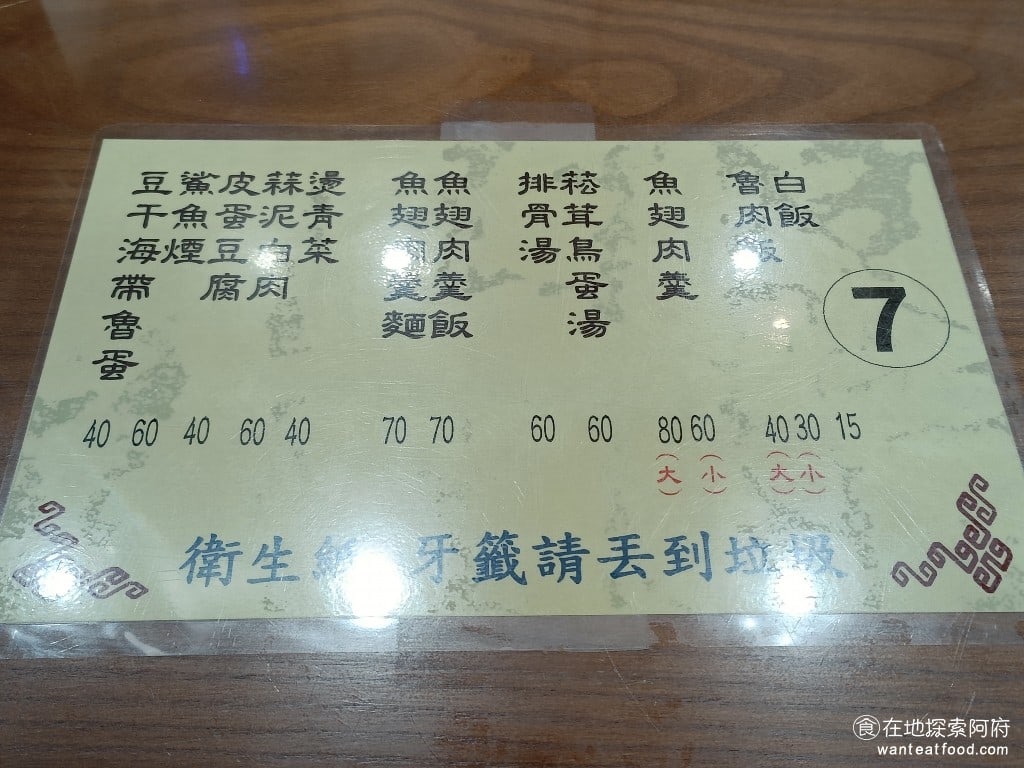 白飯 15
魯肉飯 40(大) 30(小)
魚翅肉羹 80(大) 60(小)
菘茸鳥蛋湯 60
排骨湯 60
魚翅肉羹飯 70
魚翅肉羹麵 70
燙青菜 40
蒜泥白肉 60
皮蛋豆腐 40
鯊魚煙 60
豆干海帶魯蛋 40
7
衛生紙 牙籤請丟到垃圾
食在地探索阿府
wanteatfood.com